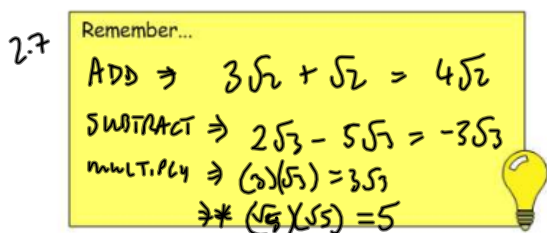 2.7
Remember...
ADD ⇒ 3√2 + √2 = 4√2
SUBTRACT ⇒ 2√3 - 5√3 = -3√3
MULTIPLY ⇒ (3)(√3) = 3√3
⇒* (√5)(√5) = 5